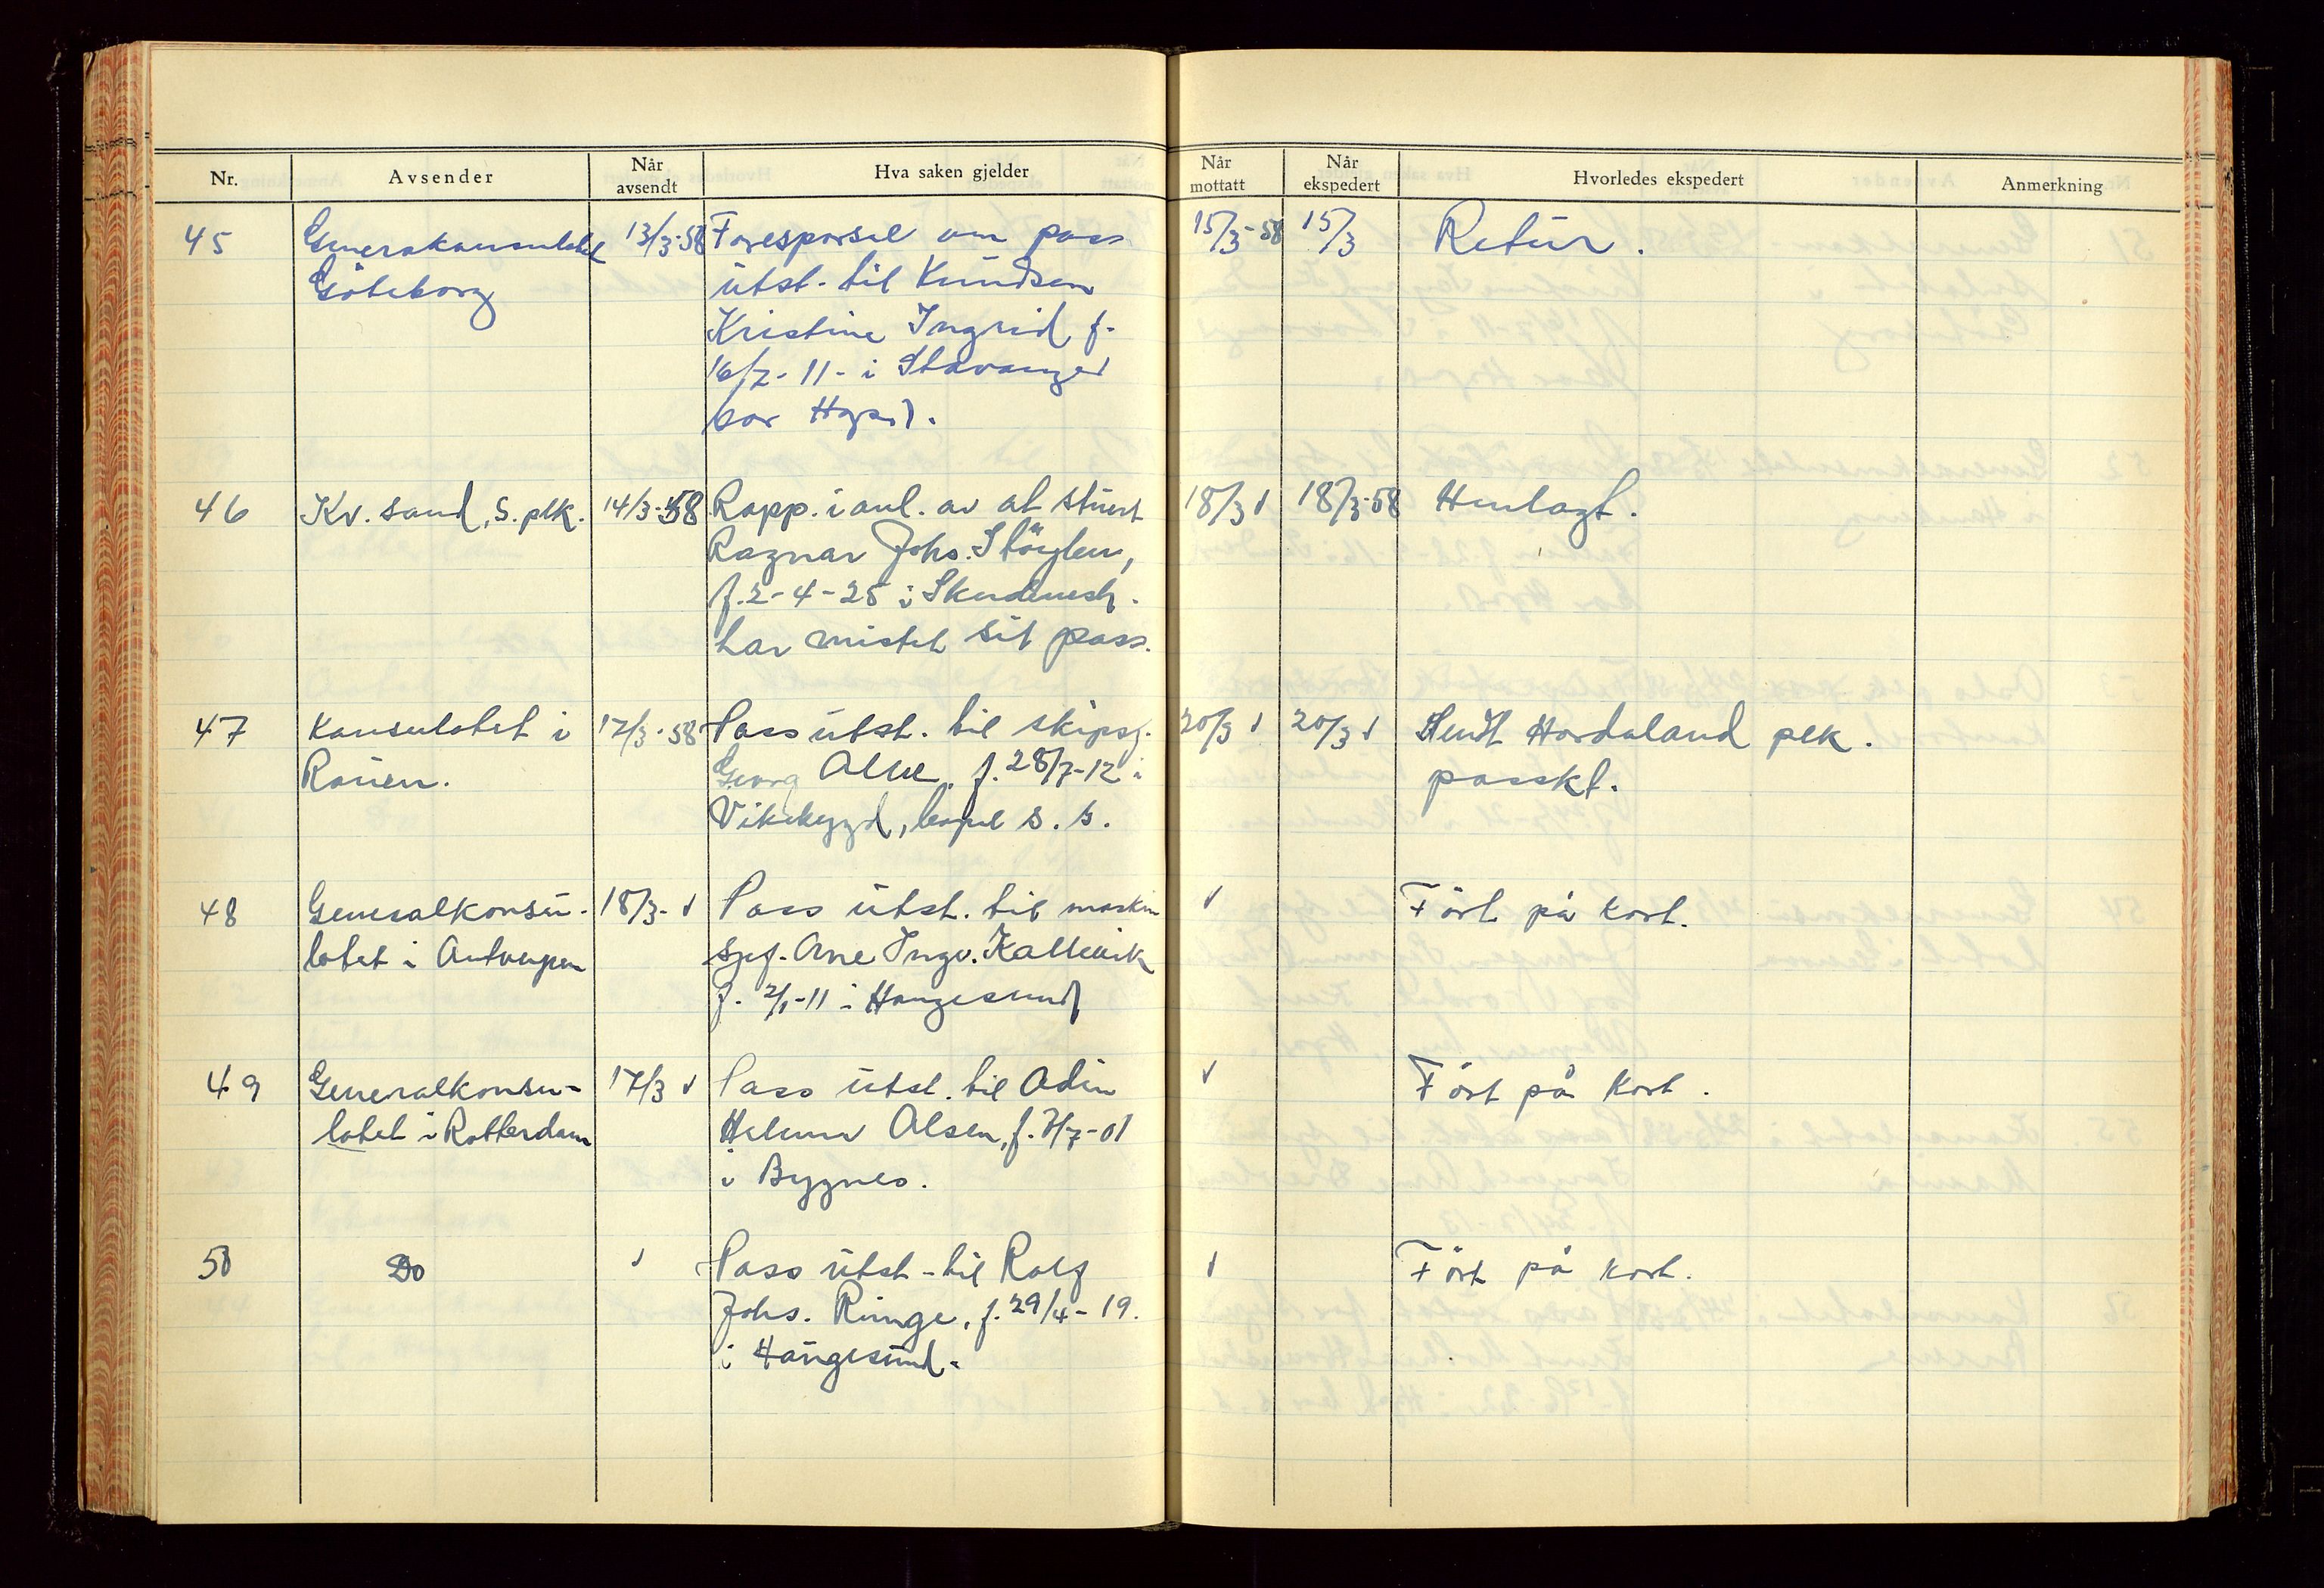 Nr.
Avsender
Når avsendt
Hva saken gjelder
Når mottatt
Når ekspedert
Hvorledes ekspedert
Anmerkning
45
Generakonsulatet
Göteborg
13/3-58
Forespørsel om pass
utst. til Knudsen
Kristine Ingrid f.
16/7-11- i Stavanger
bor Hgsd.
15/3-58
15/3
Retur.
46
Kv. sand, S. plk.
14/3-58
Rapp. i anl. av at stuert
Ragnar Johs.
f. 2-4-25 i Skudenesh.
har mistet sit pass.
18/3 √
18/3-58
Henlagt.
47
Konsulatet i
Rouen.
17/3-58
Pass utst. til skipsf.
Georg f. 28/7-12 i
Vikebygd, bopel s. s.
20/3 √
20/3 √
Sendt Hordaland plk.
passkt.
48
Generalkonsu-
latet i Antwerpen
18/3- √
Pass utst. til maskin
Arne Ingv. Kallevik
f. 2/1-11 i Haugesund
√
Fört på kort.
49
Generalkonsu-
latet i Rotterdam
17/3 √
Pass utst. til Odin
Helmer Olsen, f. 7/7-01
i Bygnes.
√
Fört på kort.
50
Do
√
Pass utst - til Rolf
Johs. Ringe, f. 29/4-19.
i Haugesund.
√
Fört på kort.